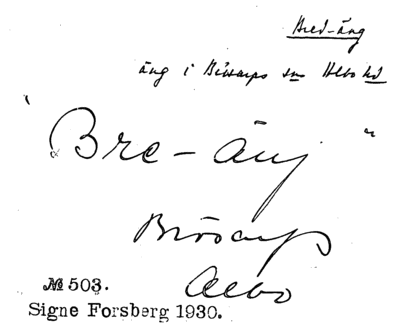 Bred-äng
äng i Brösarps sn Albo hd
"Bre-änj"
Brösarp
Albo
№ 503.
Signe Forsberg 1930.